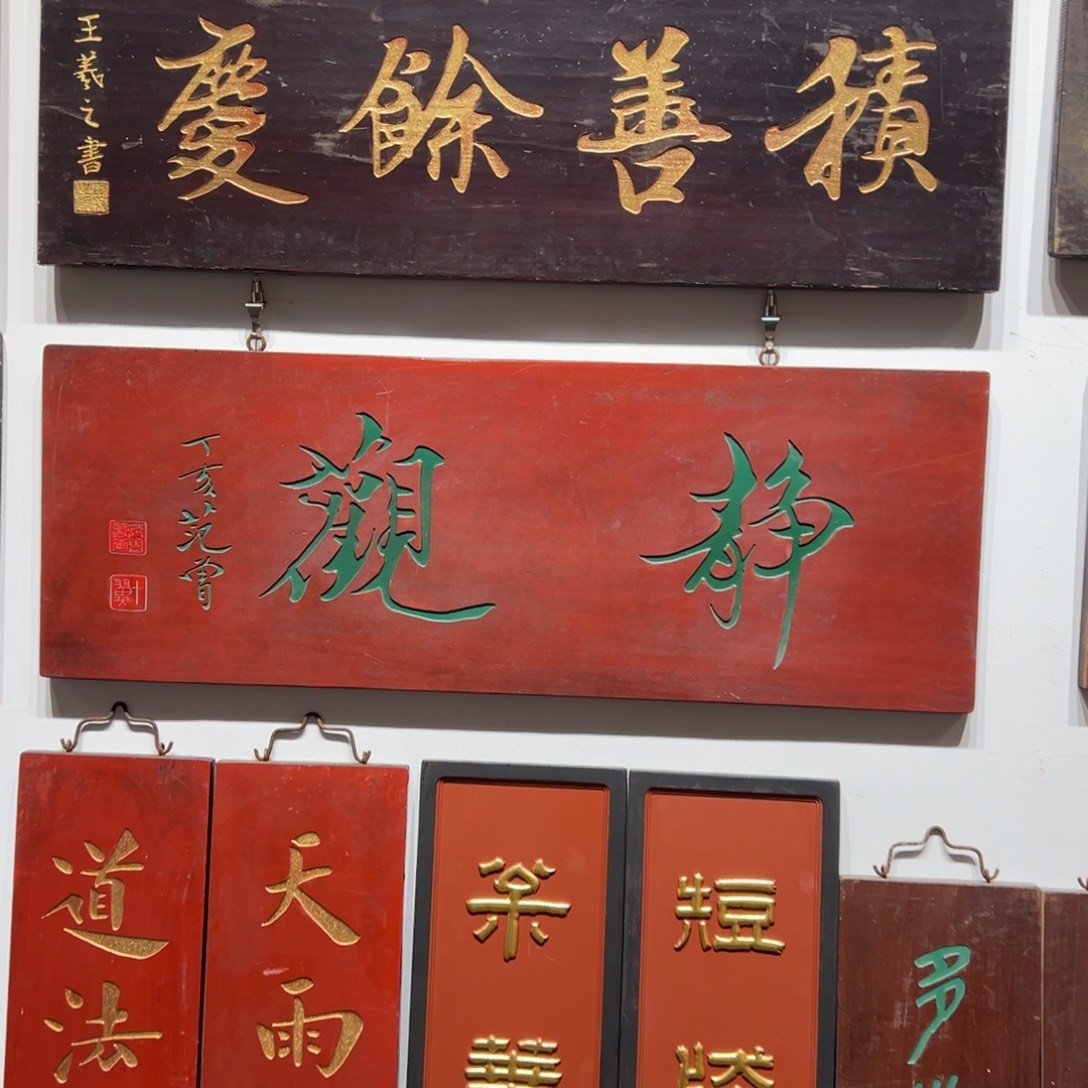 積善餘慶
王羲之書
静觀
丁亥范曾
道法
天雨
短
多